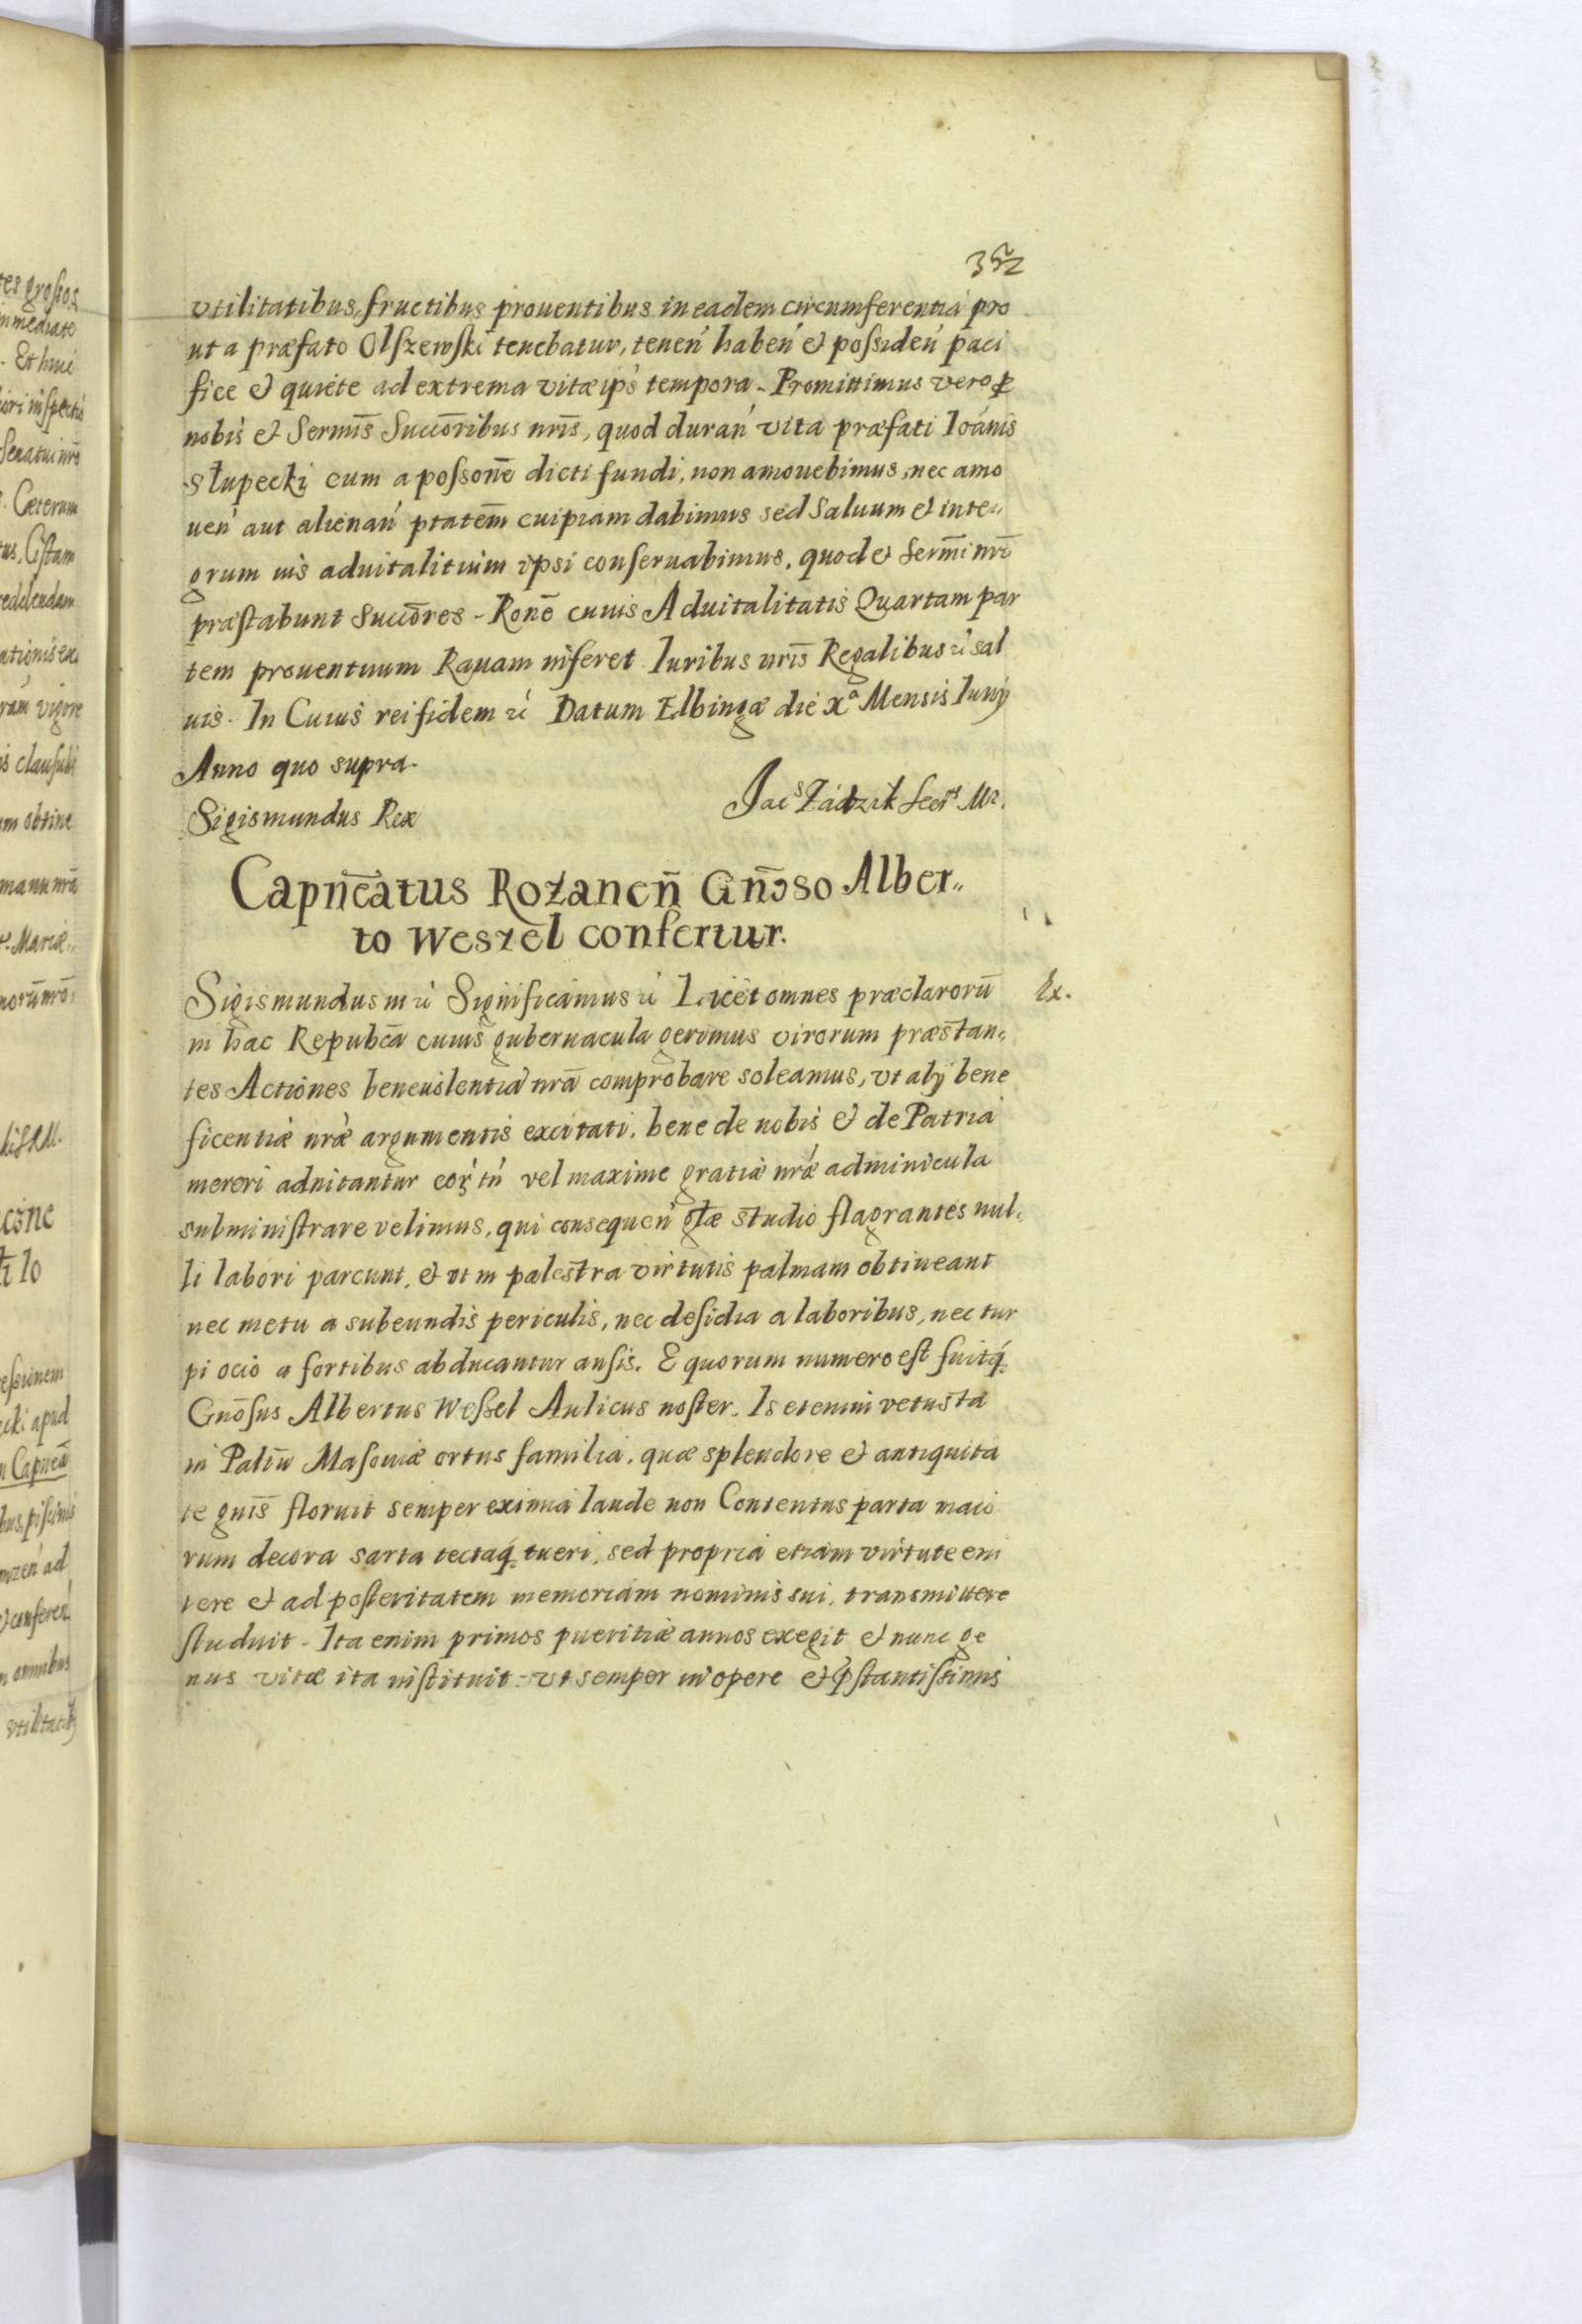 352
vtilitatibus, fructibus prouentibus in eadem circumferentia pro
ut a præfato Olszewski tenebatur, tenen̄ haben̄ et possiden̄ paci
fice et quiete ad extrema vitæ ips̄ tempora. Promittimus vero ꝓ
nobis et Serm̄is Succor̄ibus nr̄is, quod duran̄ vita præfati Ioan̄is
Słupecki eum a posson̄e dicti fundi, non amouebimus, nec amo
uen̄ aut alienan̄ ptatem̄ cuipiam dabimus sed Saluum et inte„
grum ius aduitalitium ipsi conseruabimus, quod et Serm̄i nr̄i
præstabunt Succor̄es. Ron̄e cuius Aduitalitatis Quartam par
tem prouentuum Rauam inferet Iuribus nr̄is Regalibus ꝛc̄ sal
uis. In Cuius rei fidem ꝛc̄ Datum Elbingæ die xᵃ Mensis Iunij
Anno quo supra.
Sigismundus Rex
Jacˢ Zadzik Secrˢ Mr.
Capn̄eatus Rozanen̄ Gn̄oso Alber„
to Weszel confertur.
Sigismundus III ꝛc̄ Significamus ꝛc̄ Licet omnes præclarorū
Ex.
in hac Repub̄ca cuius gubernacula gerimus virorum præstan„
tes Actiones beneuolentia nr̄a comprobare soleamus, vt alij bene
ficentiæ nr̄æ argumentis excitati, bene de nobis et de Patria
mereri adnitantur eoꝝ tn̄ vel maxime gratiæ nr̄æ adminicula
subministrare velimus, qui consequen̄ gl̄æ studio flagrantes nul„
li labori parcunt, et ut in palestra virtutis palmam obtineant
nec metu a subeundis periculis, nec desidia a laboribus, nec tur
pi ocio a fortibus abducantur ausis. E quorum numero est fuitq́;
Gnōsus Albertus Wessel Aulicus noster. Is etenim vetusta
in Palt̄u Masouiæ ortus familia, quæ splendore et antiquita
te gn̄is floruit semper eximia laude non Contentus parta maio
rum decora sarta tectaq́; tueri, sed propria etiam virtute eni
tere et ad posteritatem memoriam nominis sui, transmittere
studuit. Ita enim primos pueritiæ annos exegit et nunc ge
nus vitæ ita instituit, vt semper in opere et p̄stantissimis